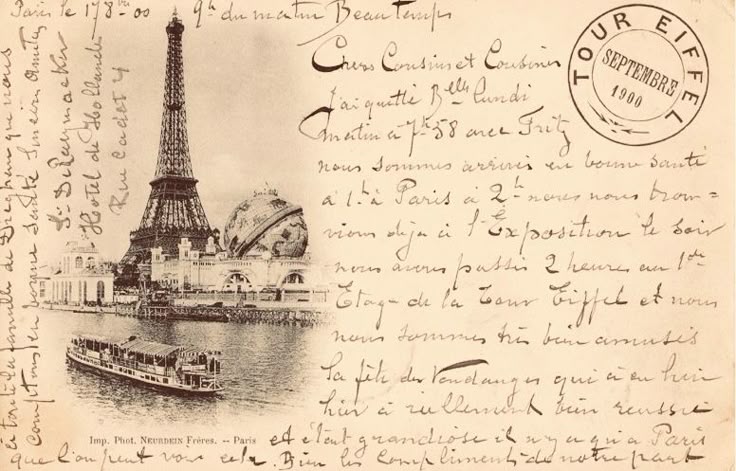 Paris le 17 8bre 00 9h du matin Beau temps
Chers Cousins et Cousines
J'ai quitté Blle lundi
matin à 7h 58 avec Fritz
nous sommes arrivés en bonne santé
à 1h à Paris à 2h nous nous trou=
vions déja à l'Exposition le soir
nous avons passés 2 heures au 1r
Etage de la Tour Eiffel et nous
nous sommes très bien amusés
la fête des Vendanges qui a eu
hier à réellement bien reussie
et était grandiose il n'y a qu'à Paris
que l'on peut voir cela. Bien les compliments de notre part
à toute la famille de que nous
comptons en bonne santé Sincères Amitiés
Hotel de Hollande
Rue Cadet 4
TOUR EIFFEL
SEPTEMBRE
1900
Imp. Phot. NEURDEIN Frères. -- Paris